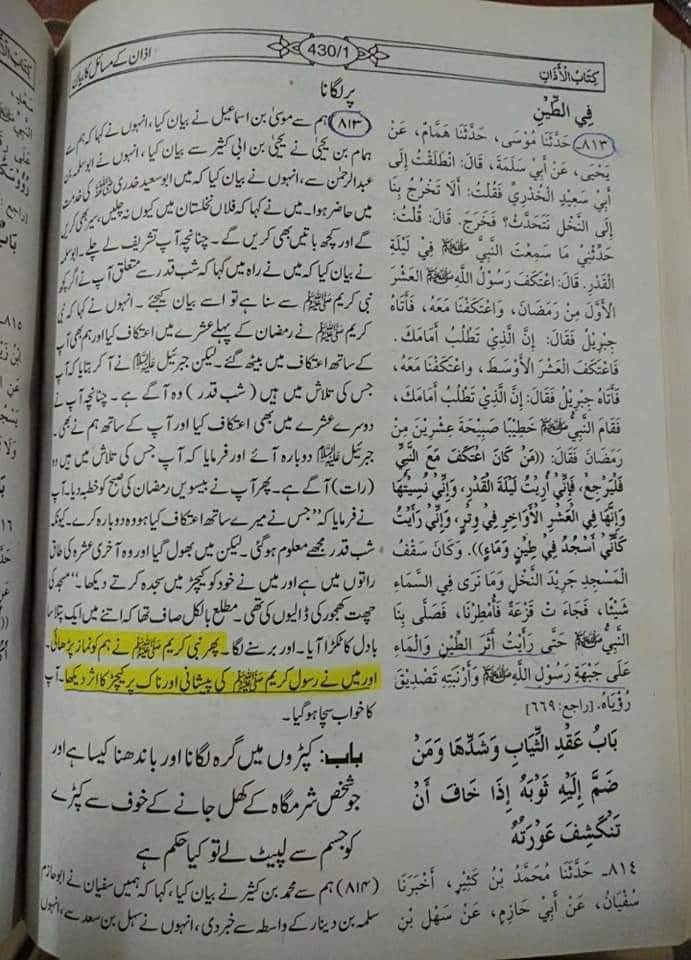 كِتَابُ الْأَذَانِ
430/1
اذان کے مسائل کا بیان
فِي الطِّيْنِ
٨١٣- حَدَّثَنَا مُوْسَى، حَدَّثَنَا هَمَّامٌ، عَنْ
يَحْيَى، عَنْ أَبِي سَلَمَةَ، قَالَ: انْطَلَقْتُ إِلَى
أَبِي سَعِيْدٍ الْخُدْرِيِّ فَقُلْتُ: أَلَا تَخْرُجُ بِنَا
إِلَى النَّخْلِ نَتَحَدَّثُ؟ فَخَرَجَ. قَالَ: قُلْتُ:
حَدِّثْنِي مَا سَمِعْتَ النَّبِيَّ ﷺ فِي لَيْلَةِ
الْقَدْرِ. قَالَ: اعْتَكَفَ رَسُوْلُ اللَّهِ ﷺ الْعَشْرَ
الْأَوَّلَ مِنْ رَمَضَانَ، وَاعْتَكَفْنَا مَعَهُ، فَأَتَاهُ
جِبْرِيْلُ فَقَالَ: إِنَّ الَّذِيْ تَطْلُبُ أَمَامَكَ.
فَاعْتَكَفَ الْعَشْرَ الْأَوْسَطَ، وَاعْتَكَفْنَا مَعَهُ،
فَأَتَاهُ جِبْرِيْلُ فَقَالَ: إِنَّ الَّذِيْ تَطْلُبُ أَمَامَكَ،
فَقَامَ النَّبِيُّ ﷺ خَطِيْبًا صَبِيْحَةَ عِشْرِيْنَ مِنْ
رَمَضَانَ فَقَالَ: ((مَنْ كَانَ اعْتَكَفَ مَعَ النَّبِيِّ
فَلْيَرْجِعْ، فَإِنِّيْ أُرِيْتُ لَيْلَةَ الْقَدْرِ، وَإِنِّيْ نُسِّيْتُهَا
وَإِنَّهَا فِي الْعَشْرِ الْأَوَاخِرِ فِيْ وِتْرٍ، وَإِنِّيْ رَأَيْتُ
كَأَنِّيْ أَسْجُدُ فِي طِيْنٍ وَمَاءٍ)). وَكَانَ سَقْفُ
الْمَسْجِدِ جَرِيْدَ النَّخْلِ وَمَا نَرَى فِي السَّمَاءِ
شَيْئًا، فَجَاءَتْ قَزَعَةٌ فَأُمْطِرْنَا، فَصَلَّى بِنَا
النَّبِيُّ ﷺ حَتَّى رَأَيْتُ أَثَرَ الطِّيْنِ وَالْمَاءِ
عَلَى جَبْهَةِ رَسُوْلِ اللَّهِ ﷺ وَأَرْنَبَتِهِ تَصْدِيْقَ
رُؤْيَاهُ. [راجع: ٦٦٩]
بَابُ عَقْدِ الثِّيَابِ وَشَدِّهَا وَمَنْ
ضَمَّ إِلَيْهِ ثَوْبَهُ إِذَا خَافَ أَنْ
تَنْكَشِفَ عَوْرَتُهُ
٨١٤- حَدَّثَنَا مُحَمَّدُ بْنُ كَثِيْرٍ، أَخْبَرَنَا
سُفْيَانُ، عَنْ أَبِي حَازِمٍ، عَنْ سَهْلِ بْنِ
پر لگانا
(۸۱۳) ہم سے موسیٰ بن اسماعیل نے بیان کیا، انہوں نے کہا کہ ہم سے
ہمام بن یحییٰ نے یحییٰ بن ابی کثیر سے بیان کیا، انہوں نے ابوسلمہ بن
عبدالرحمٰن سے، انہوں نے بیان کیا کہ میں ابو سعید خدری رضی اللہ عنہ کی خدمت
میں حاضر ہوا۔ میں نے کہا کہ فلاں نخلستان میں کیوں نہ چلیں، سیر بھی کریں
گے اور کچھ باتیں بھی کریں گے۔ چنانچہ آپ تشریف لے چلے۔ ابوسلمہ
نے بیان کیا کہ میں نے راہ میں کہا کہ شب قدر سے متعلق آپ نے اگر کچھ
نبی کریم ﷺ سے سنا ہے تو اسے بیان کیجئے۔ انہوں نے کہا کہ نبی
کریم ﷺ نے رمضان کے پہلے عشرے میں اعتکاف کیا اور ہم بھی آپ
کے ساتھ اعتکاف میں بیٹھ گئے۔ لیکن جبرئیل علیہ السلام نے آ کر بتایا کہ آپ
جس کی تلاش میں ہیں (شب قدر) وہ آگے ہے۔ چنانچہ آپ نے
دوسرے عشرے میں بھی اعتکاف کیا اور آپ کے ساتھ ہم نے بھی۔
جبرئیل علیہ السلام دوبارہ آئے اور فرمایا کہ آپ جس کی تلاش میں ہیں وہ
(رات) آگے ہے۔ پھر آپ نے بیسویں رمضان کی صبح کو خطبہ دیا۔ آپ
نے فرمایا کہ ”جس نے میرے ساتھ اعتکاف کیا ہو وہ دوبارہ کرے۔ کیونکہ
شب قدر مجھے معلوم ہوگئی۔ لیکن میں بھول گیا اور وہ آخری عشرہ کی طاق
راتوں میں ہے اور میں نے خود کو کیچڑ میں سجدہ کرتے دیکھا۔“ مسجد کی
چھت کھجور کی ڈالیوں کی تھی۔ مطلع بالکل صاف تھا کہ اتنے میں ایک پتلا سا
بادل کا ٹکڑا آیا۔ اور برسنے لگا۔ پھر نبی کریم ﷺ نے ہم کو نماز پڑھائی۔
اور میں نے رسول کریم ﷺ کی پیشانی اور ناک پر کیچڑ کا اثر دیکھا۔ آپ
کا خواب سچا ہو گیا۔
باب: کپڑوں میں گرہ لگانا اور باندھنا کیسا ہے اور
جو شخص شرمگاہ کے کھل جانے کے خوف سے کپڑے
کو جسم سے لپیٹ لے تو کیا حکم ہے
(۸۱۴) ہم سے محمد بن کثیر نے بیان کیا، کہا کہ ہمیں سفیان نے ابو حازم
سلمہ بن دینار کے واسطہ سے خبر دی، انہوں نے سہل بن سعد سے،